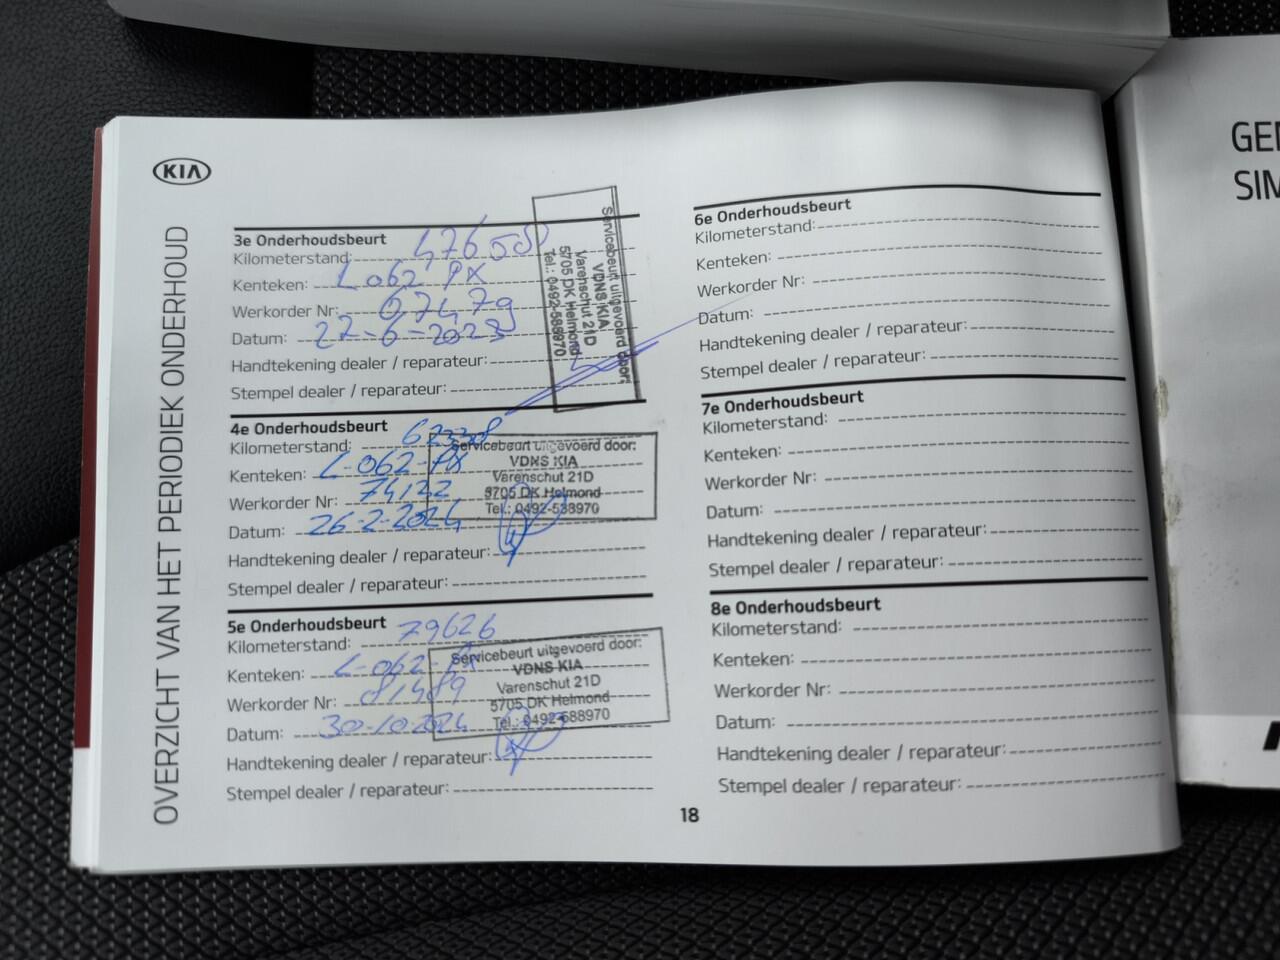 KIA
OVERZICHT VAN HET PERIODIEK ONDERHOUD
3e Onderhoudsbeurt
Kilometerstand:
Kenteken: L062 PX
Werkorder Nr: 67479
Datum: 22-6-2023
Handtekening dealer / reparateur:
Stempel dealer / reparateur:
Servicebeurt uitgevoerd door:
VDNS KIA
Varenschut 21D
5705 DK Helmond
Tel.: 0492-588970
4e Onderhoudsbeurt
Kilometerstand:
Kenteken: L-062-PX
Werkorder Nr: 74122
Datum: 26-2-2024
Handtekening dealer / reparateur:
Stempel dealer / reparateur:
Servicebeurt uitgevoerd door:
VDNS KIA
Varenschut 21D
5705 DK Helmond
Tel.: 0492-588970
5e Onderhoudsbeurt
Kilometerstand: 79626
Kenteken: L-062-PX
Werkorder Nr: 81489
Datum: 30-10-2024
Handtekening dealer / reparateur:
Stempel dealer / reparateur:
Servicebeurt uitgevoerd door:
VDNS KIA
Varenschut 21D
5705 DK Helmond
Tel.: 0492-588970
6e Onderhoudsbeurt
Kilometerstand:
Kenteken:
Werkorder Nr:
Datum:
Handtekening dealer / reparateur:
Stempel dealer / reparateur:
7e Onderhoudsbeurt
Kilometerstand:
Kenteken:
Werkorder Nr:
Datum:
Handtekening dealer / reparateur:
Stempel dealer / reparateur:
8e Onderhoudsbeurt
Kilometerstand:
Kenteken:
Werkorder Nr:
Datum:
Handtekening dealer / reparateur:
Stempel dealer / reparateur:
18